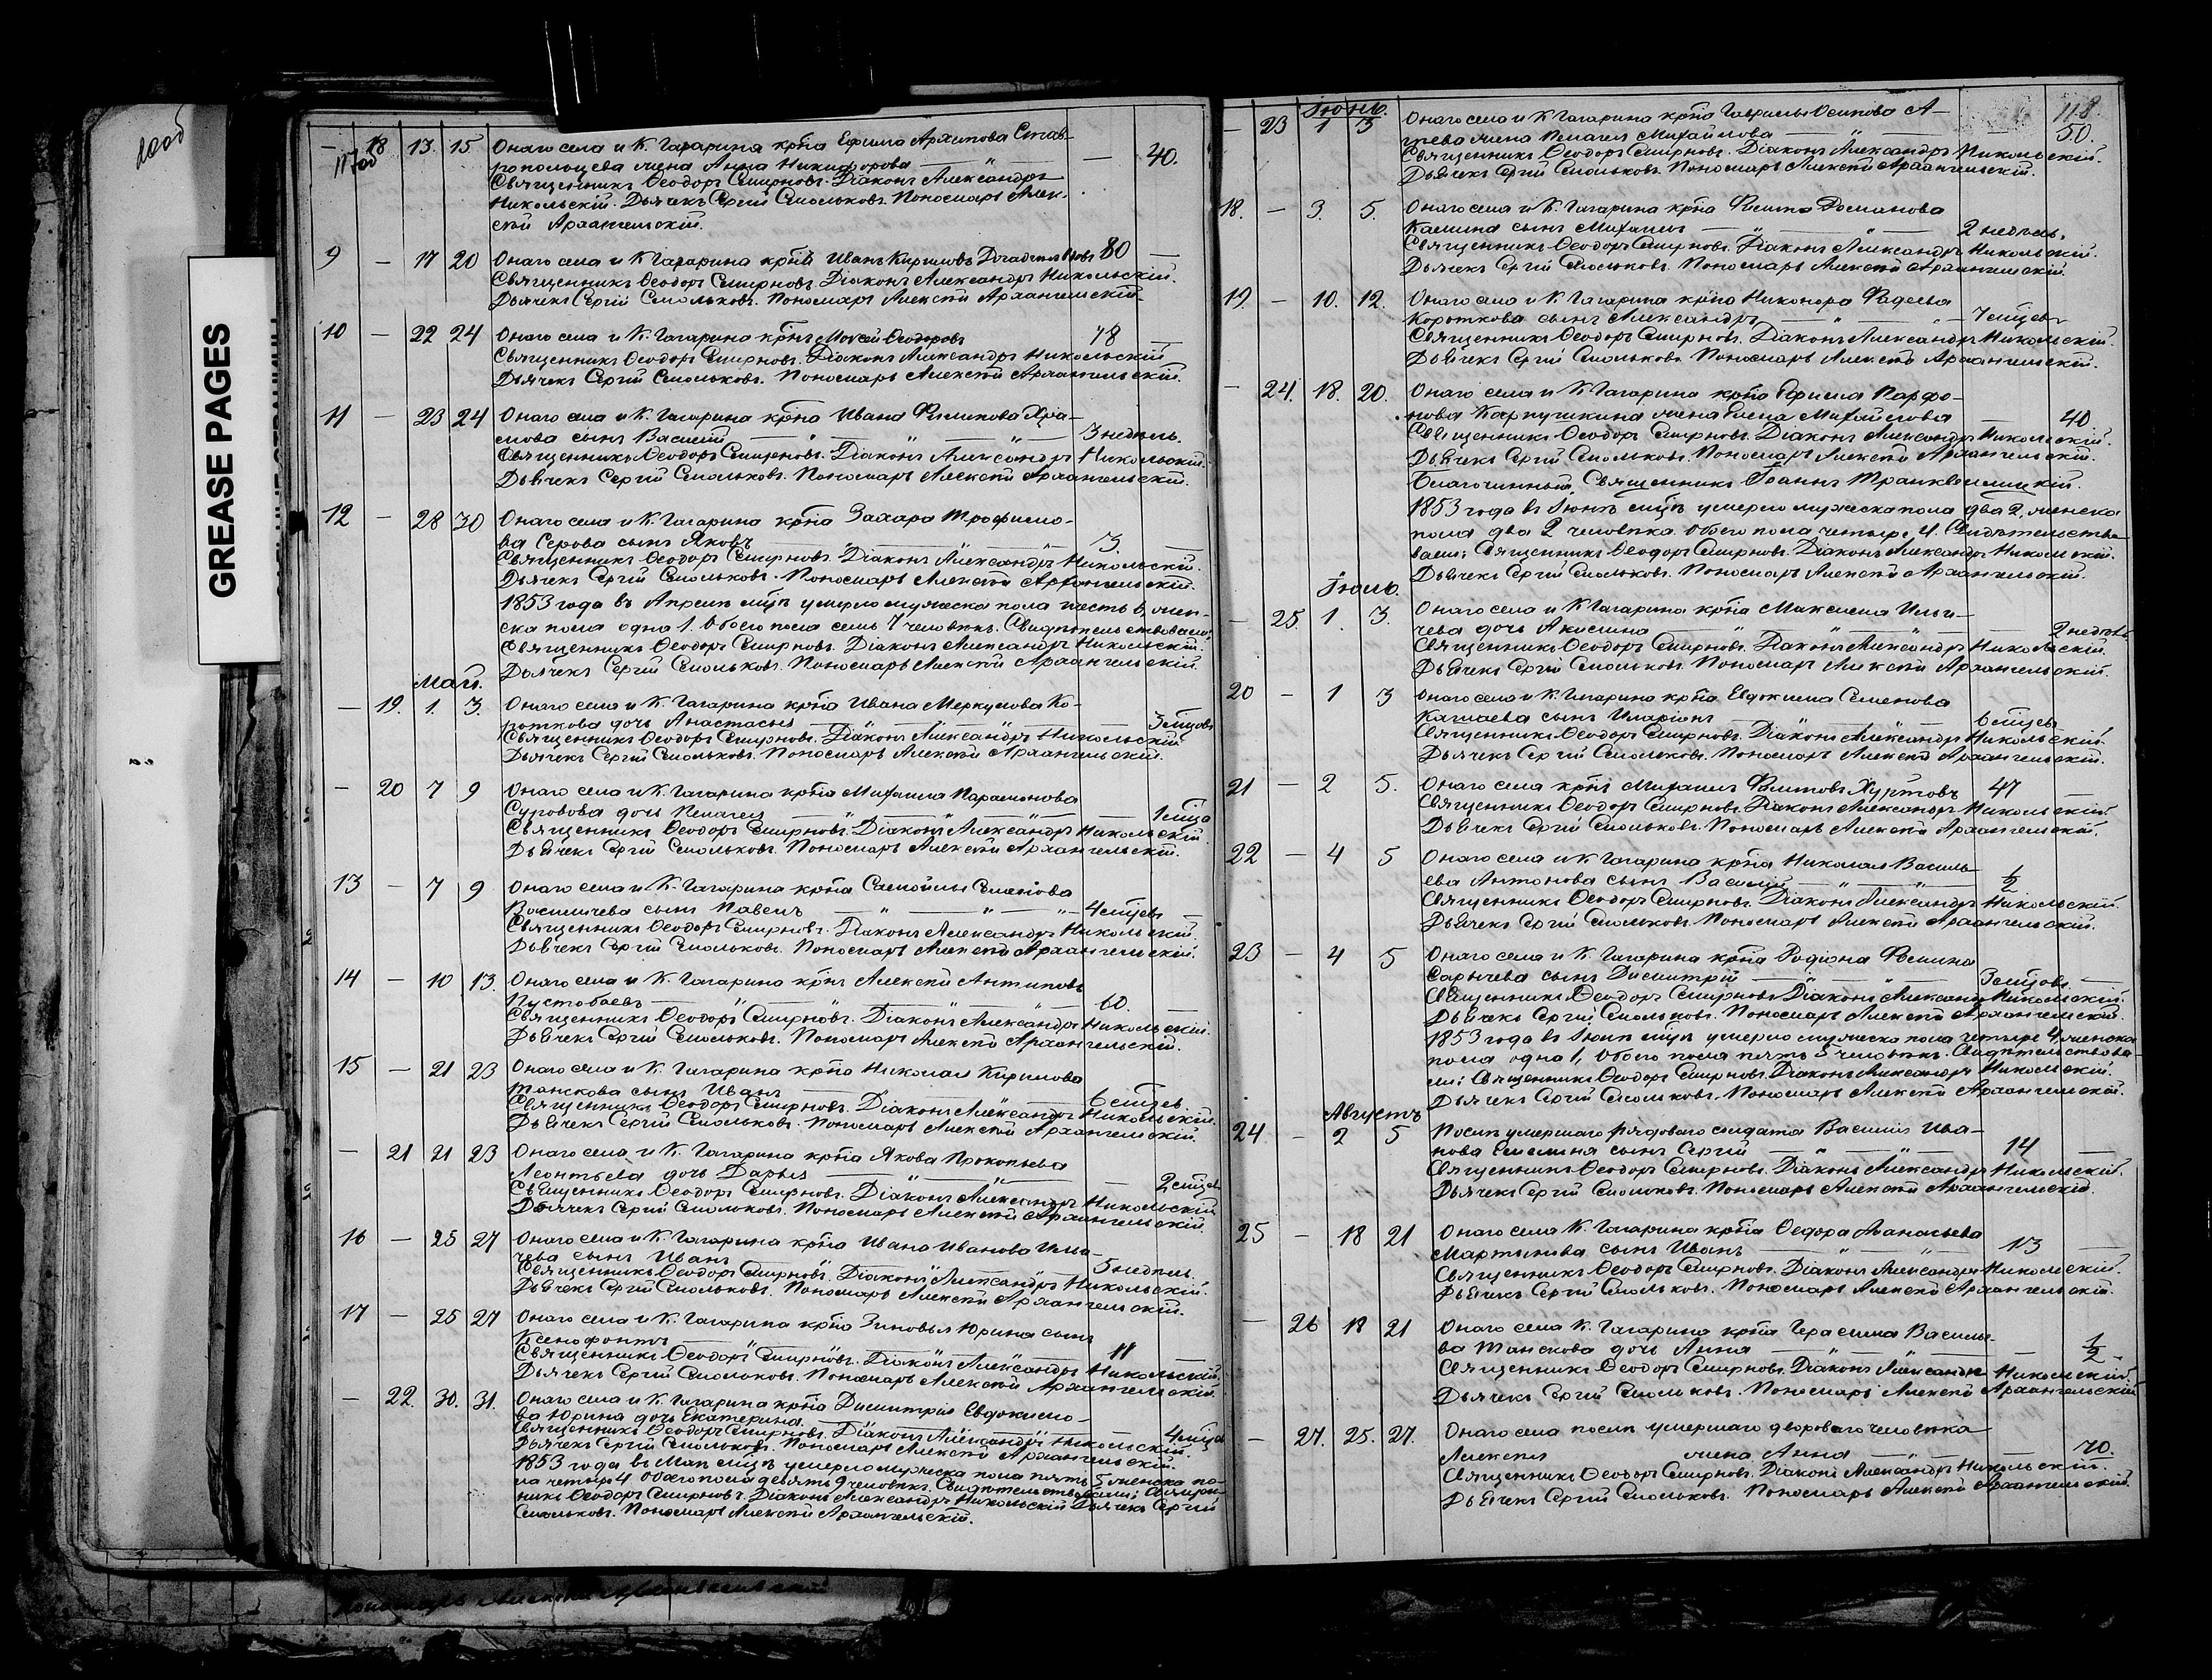 117об
— 18 13. 15 Онаго села и К. Гагарина крѣна Ефима Архипова Став-
ропольцева жена Анна Никифорова — " — — 40.
Священникъ Ѳеодоръ Смирновъ. Діаконъ Александръ
Никольскій. Дьячекъ Сергій Смольковъ. Пономарь Алек-
сѣй Архангельскій.
9 — 17 20 Онаго села и К. Гагарина крѣнъ Иванъ Кириловъ 80 —
Священникъ Ѳеодоръ Смирновъ. Діаконъ Александръ Никольскій.
Дьячекъ Сергій Смольковъ. Пономарь Алексѣй Архангельскій.
10 — 22 24 Онаго села и К. Гагарина крѣнъ Мокей Ѳеодоровъ 78 —
Священникъ Ѳеодоръ Смирновъ. Діаконъ Александръ Никольскій
Дьячекъ Сергій Смольковъ. Пономарь Алексѣй Архангельскій.
11 — 23 24 Онаго села и К. Гагарина крѣна Ивана Филипова Хра-
мова сынъ Василій — " — " — " — 3 недѣль.
Священникъ Ѳеодоръ Смирновъ. Діаконъ Александръ Никольскій.
Дьячекъ Сергій Смольковъ. Пономарь Алексѣй Архангельскій.
12 — 28 30 Онаго села и К. Гагарина крѣна Захара Трофимо-
ва Серова сынъ Яковъ — " — " — 3. —
Священникъ Ѳеодоръ Смирновъ. Діаконъ Александръ Никольскій.
Дьячекъ Сергій Смольковъ. Пономарь Алексѣй Архангельскій.
1853 года въ Апрелѣ мцѣ умерло мужеска пола шесть 6 жен-
ска пола одна 1. Обоего пола семь 7 человѣкъ. Свидѣтельствовали:
Священникъ Ѳеодоръ Смирновъ. Діаконъ Александръ Никольскій.
Дьячекъ Сергій Смольковъ. Пономарь Алексѣй Архангельскій.
Май.
— 19. 1. 3. Онаго села и К. Гагарина крѣна Ивана Меркулова Ко-
роткова дочь Анастасья — " — " — 3 мцовъ
Священникъ Ѳеодоръ Смирновъ. Діаконъ Александръ Никольскій
Дьячекъ Сергій Смольковъ. Пономарь Алексѣй Архангельскій.
— 20 7 9 Онаго села и К. Гагарина крѣна Михаила Парамонова
Суровова дочь Пелагея — " — " — 1 мца
Священникъ Ѳеодоръ Смирновъ. Діаконъ Александръ Никольскій.
Дьячекъ Сергій Смольковъ. Пономарь Алексѣй Архангельскій.
13 — 7 9 Онаго села и К. Гагарина крѣна Самойлы Семенова
сынъ Павелъ — " — " — " — 4 мцевъ
Священникъ Ѳеодоръ Смирновъ. Діаконъ Александръ Никольскій
Дьячекъ Сергій Смольковъ. Пономарь Алексѣй Архангельскій.
14 — 10 13. Онаго села и К. Гагарина крѣнъ Алексѣй Антиповъ
Пустобаевъ — " — " — " — 60. —
Священникъ Ѳеодоръ Смирновъ. Діаконъ Александръ Никольскій.
Дьячекъ Сергій Смольковъ. Пономарь Алексѣй Архангельскій.
15 — 21 23 Онаго села и К. Гагарина крѣна Николая Кирилова
Танскова сынъ Иванъ — " — " — 6 мцевъ.
Священникъ Ѳеодоръ Смирновъ. Діаконъ Александръ Никольскій.
Дьячекъ Сергій Смольковъ. Пономарь Алексѣй Архангельскій.
— 21 21 23 Онаго села и К. Гагарина крѣна Якова Прокопьева
Леонтьева дочь Дарья — " — " — 2 мцевъ
Священникъ Ѳеодоръ Смирновъ. Діаконъ Александръ Никольскій
Дьячекъ Сергій Смольковъ. Пономарь Алексѣй Архангельскій.
16 — 25 27 Онаго села и К. Гагарина крѣна Ивана Иванова Ильи-
чева сынъ Иванъ — " — " — 5 недѣль.
Священникъ Ѳеодоръ Смирновъ. Діаконъ Александръ Никольскій.
Дьячекъ Сергій Смольковъ. Пономарь Алексѣй Архангельскій.
17 — 25 27 Онаго села и К. Гагарина крѣна Зиновья Юрина сынъ
Ксенофонтъ — " — " — 11 —
Священникъ Ѳеодоръ Смирновъ. Діаконъ Александръ Никольскій.
Дьячекъ Сергій Смольковъ. Пономарь Алексѣй Архангельскій.
— 22. 30. 31. Онаго села и К. Гагарина крѣна Димитрія Евдокимо-
ва Юрина дочь Екатерина. — " — " — 4 мца
Священникъ Ѳеодоръ Смирновъ. Діаконъ Александръ Никольскій.
Дьячекъ Сергій Смольковъ. Пономарь Алексѣй Архангельскій.
1853 года въ Маѣ мцѣ умерло мужеска пола пять 5 женска по-
ла четыре 4 Обоего пола девять 9 человѣкъ. Свидѣтельствовали: Священ-
никъ Ѳеодоръ Смирновъ. Діаконъ Александръ Никольскій Дьячекъ Сергій
Смольковъ. Пономарь Алексѣй Архангельскій.
118.
Іюнь.
— 23 1 3 Онаго села и К. Гагарина крѣна Гаврилы Осипова А-
жена Пелагея Михайлова — " — — 50.
Священникъ Ѳеодоръ Смирновъ. Діаконъ Александръ Никольскій.
Дьячекъ Сергій Смольковъ. Пономарь Алексѣй Архангельскій.
18. — 3. 5. Онаго села и К. Гагарина крѣна Филипа Романова
Калинина сынъ Михаилъ — " — " — 2 недѣль.
Священникъ Ѳеодоръ Смирновъ. Діаконъ Александръ Никольскій.
Дьячекъ Сергій Смольковъ. Пономарь Алексѣй Архангельскій.
19. — 10. 12. Онаго села и К. Гагарина крѣна Никонора Фадеева
Короткова сынъ Александръ — " — 7 мцевъ
Священникъ Ѳеодоръ Смирновъ. Діаконъ Александръ Никольскій.
Дьячекъ Сергій Смольковъ. Пономарь Алексѣй Архангельскій.
— 24. 18. 20. Онаго села и К. Гагарина крѣна Ефима Парфе-
нова Карпушкина жена Елена Михайлова — 40
Священникъ Ѳеодоръ Смирновъ. Діаконъ Александръ Никольскій.
Дьячекъ Сергій Смольковъ. Пономарь Алексѣй Архангельскій.
Благочинный, Священникъ Іоаннъ Транквиллицкій.
1853 года въ Іюнѣ мцѣ умерло мужеска пола два 2, женска
пола два 2 человѣка. Обоего пола четыре 4. Свидѣтельство-
вали: Священникъ Ѳеодоръ Смирновъ. Діаконъ Александръ Никольскій.
Дьячекъ Сергій Смольковъ. Пономарь Алексѣй Архангельскій.
Іюль.
— 25. 1. 3. Онаго села и К. Гагарина крѣна Максима Ильи-
чева дочь Акилина — " — " — 2 недѣль
Священникъ Ѳеодоръ Смирновъ. Діаконъ Александръ Никольскій.
Дьячекъ Сергій Смольковъ. Пономарь Алексѣй Архангельскій.
20 — 1 3 Онаго села и К. Гагарина крѣна Евдокима Семенова
Кашаева сынъ Иларіонъ — " — " — 6 мцевъ
Священникъ Ѳеодоръ Смирновъ. Діаконъ Александръ Никольскій.
Дьячекъ Сергій Смольковъ. Пономарь Алексѣй Архангельскій.
21 — 2 5. Онаго села крѣнъ Михаилъ Филиповъ Хуртовъ 47 —
Священникъ Ѳеодоръ Смирновъ. Діаконъ Александръ Никольскій.
Дьячекъ Сергій Смольковъ. Пономарь Алексѣй Архангельскій.
22 — 4 5 Онаго села и К. Гагарина крѣна Николая Василь-
ева Антонова сынъ Василій — " — " — ½
Священникъ Ѳеодоръ Смирновъ. Діаконъ Александръ Никольскій.
Дьячекъ Сергій Смольковъ. Пономарь Алексѣй Архангельскій.
23 — 4 5 Онаго села и К. Гагарина крѣна Родіона Фомина
Сарычева сынъ Димитрій — " — " — 3 мцовъ —
Священникъ Ѳеодоръ Смирновъ Діаконъ Александръ Никольскій.
Дьячекъ Сергій Смольковъ. Пономарь Алексѣй Архангельскій.
1853 года въ Іюлѣ мцѣ умерло мужеска пола четыре 4, женска
пола одна 1, Обоего пола пять 5 человѣкъ. Свидѣтельствова-
ли: Священникъ Ѳеодоръ Смирновъ. Діаконъ Александръ Никольскій.
Дьячекъ Сергій Смольковъ. Пономарь Алексѣй Архангельскій.
Августъ
24 — 2 5 Послѣ умершаго рядового солдата Василія Ива-
нова сынъ Сергій — " — " — 14 —
Священникъ Ѳеодоръ Смирновъ. Діаконъ Александръ Никольскій.
Дьячекъ Сергій Смольковъ. Пономарь Алексѣй Архангельскій.
25 — 18 21 Онаго села К. Гагарина крѣна Ѳедора Аѳанасьева
Мартынова сынъ Иванъ — " — " — 13 —
Священникъ Ѳеодоръ Смирновъ. Діаконъ Александръ Никольскій.
Дьячекъ Сергій Смольковъ. Пономарь Алексѣй Архангельскій.
— 26 18 21 Онаго села К. Гагарина крѣна Герасима Василье-
ва Танскова дочь Анна — " — " — ½
Священникъ Ѳеодоръ Смирновъ. Діаконъ Александръ Никольскій.
Дьячекъ Сергій Смольковъ. Пономарь Алексѣй Архангельскій
— 27. 25. 27. Онаго села послѣ умершаго двороваго человѣка
Алексѣя жена Анна — " — — 70.
Священникъ Ѳеодоръ Смирновъ. Діаконъ Александръ Никольскій.
Дьячекъ Сергій Смольковъ. Пономарь Алексѣй Архангельскій.
GREASE PAGES
Пономарь Алексѣй Архангельскій